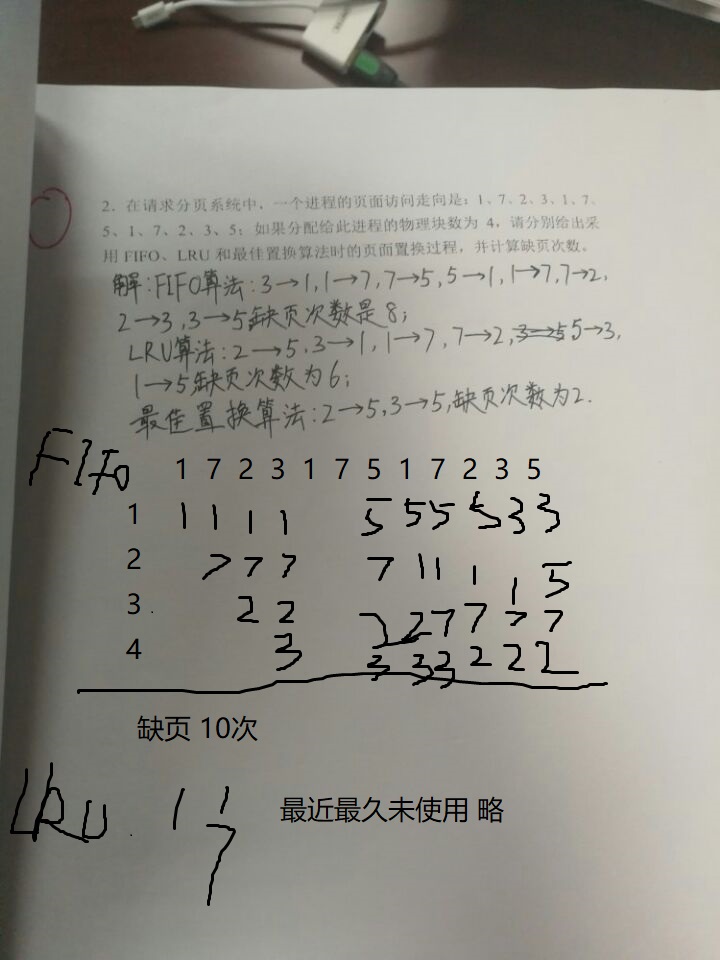 2. 在请求分页系统中，一个进程的页面访问走向是：1、7、2、3、1、7、
5、1、7、2、3、5；如果分配给此进程的物理块数为 4，请分别给出采
用 FIFO、LRU 和最佳置换算法时的页面置换过程，并计算缺页次数。
解:FIFO算法:3→1,1→7,7→5,5→1,1→7,7→2,
2→3,3→5,缺页次数是8;
LRU算法:2→5,3→1,1→7,7→2,3→5,5→3,
1→5,缺页次数为6;
最佳置换算法:2→5,3→5,缺页次数为2.
FIFO 1 7 2 3 1 7 5 1 7 2 3 5
1 1 1 1 1 5 5 5 5 3 3
2 7 7 7 7 1 1 1 1 5
3 2 2 2 2 7 7 7 7
4 3 3 3 3 2 2 2
缺页 10次
LRU 1 1 最近最久未使用 略
7